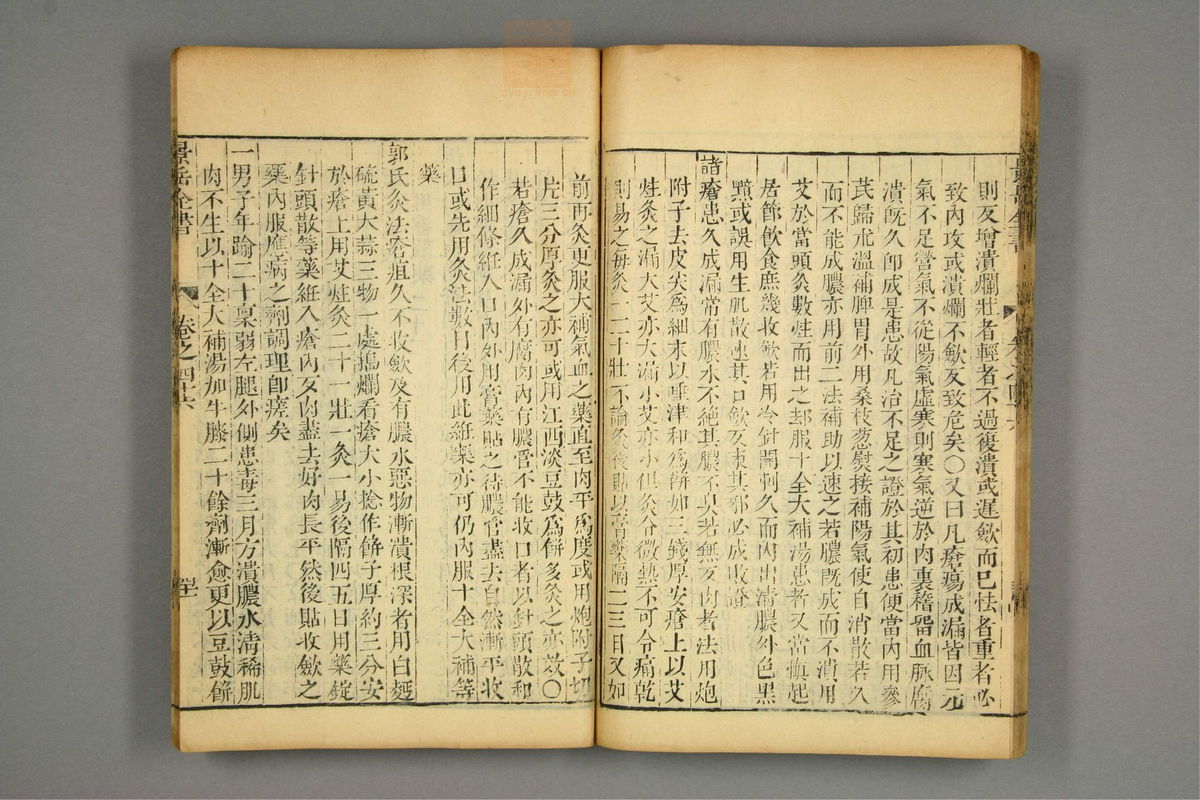 則反增潰爛壯者輕者不過復潰或遲歛而已怯者重者必
致內攻或潰爛不歛多致危矣○又曰凡瘡瘍成漏皆因元
氣不足營氣不從陽氣虛寒則寒氣逆於肉裏稽畱血脉腐
潰旣久卽成是患故凡治不足之證於其初患便當內用參
芪歸朮溫補脾胃外用桑枝葱熨接補陽氣使自消散若久
而不能成膿亦用前二法補助以速之若膿旣成而不潰用
艾於當頭灸數炷而出之却服十全大補湯患者又當愼起
居節飲食庶幾收歛若用冷針開刺久而內出清膿外色黑
黯或誤用生肌散速其口歛反束其邪必成敗證
諸瘡患久成漏常有膿水不絕其膿不臭若無歹肉者法用炮
附子去皮尖爲細末以唾津和爲餅如三錢厚安瘡上以艾
炷灸之漏大艾亦大漏小艾亦小但灸令微熱不可令痛乾
則易之每灸一二十壯不論灸後貼以膏藥隔二三日又如
前再灸更服大補氣血之藥直至肉平爲度或用炮附子切
片三分厚灸之亦可或用江西淡豆鼓爲餅多灸之亦效○
若瘡久成漏外有腐肉內有膿管不能收口者以針頭散和
作細條紝入口內外用膏藥貼之待膿管盡去自然漸平收
口或先用灸法數日後用此紝藥亦可仍內服十全大補等
藥
郭氏灸法瘡疽久不收歛及有膿水惡物漸潰根深者用白麪
硫黃大蒜三物一處搗爛看瘡大小捻作餅子厚約三分安
於瘡上用艾炷灸二十一壯一灸一易後隔四五日用藥錠
針頭散等藥紝入瘡內歹肉盡去好肉長平然後貼收歛之
藥內服應病之劑調理卽瘥矣
一男子年踰二十稟弱左腿外側患毒三月方潰膿水淸稀肌
肉不生以十全大補湯加牛膝二十餘劑漸愈更以豆鼓餅
景岳全書
卷之四十六